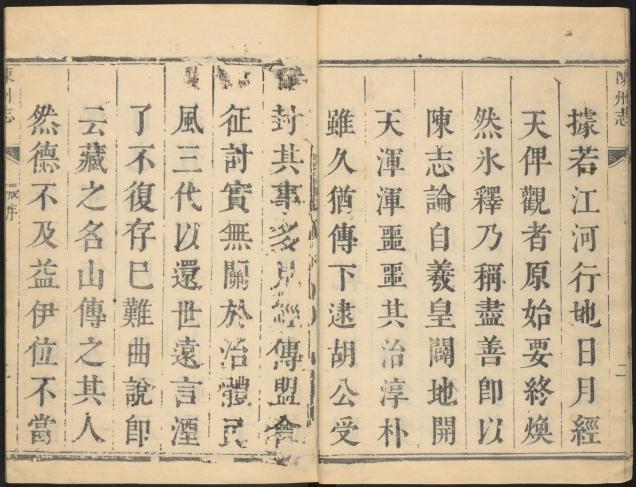 陳州志
二
據若江河行地日月經
天俾觀者原始要終煥
然氷釋乃稱盡善卽以
陳志論自羲皇闢地開
天渾渾噩噩其治淳朴
雖久猶傳下逮胡公受
封其事多見經傳盟會
征討實無關於治體民
風三代以還世遠言湮
了不復存已難曲說卽
云藏之名山傳之其人
然德不及益伊位不當
陳州志
序